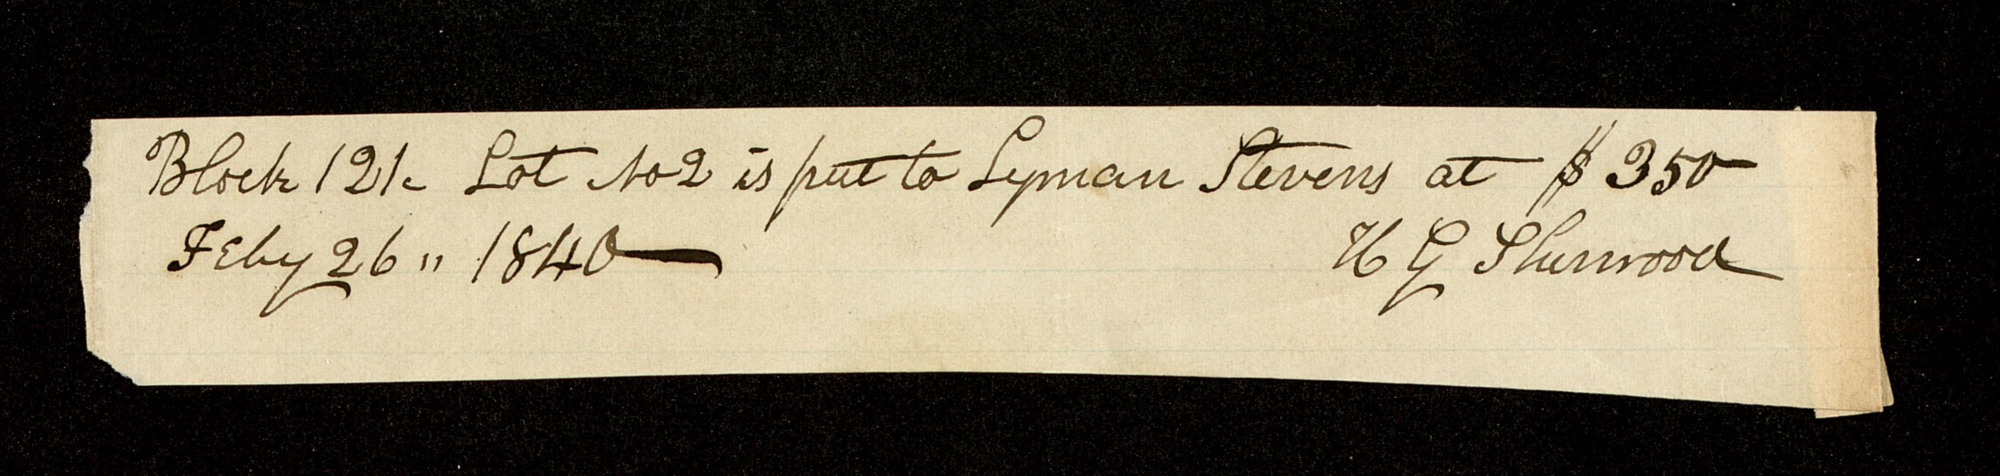 Block 121. Lot No 2 is put to Lyman Stevens at $350
Feby 26,, 1840
H G Sherwood